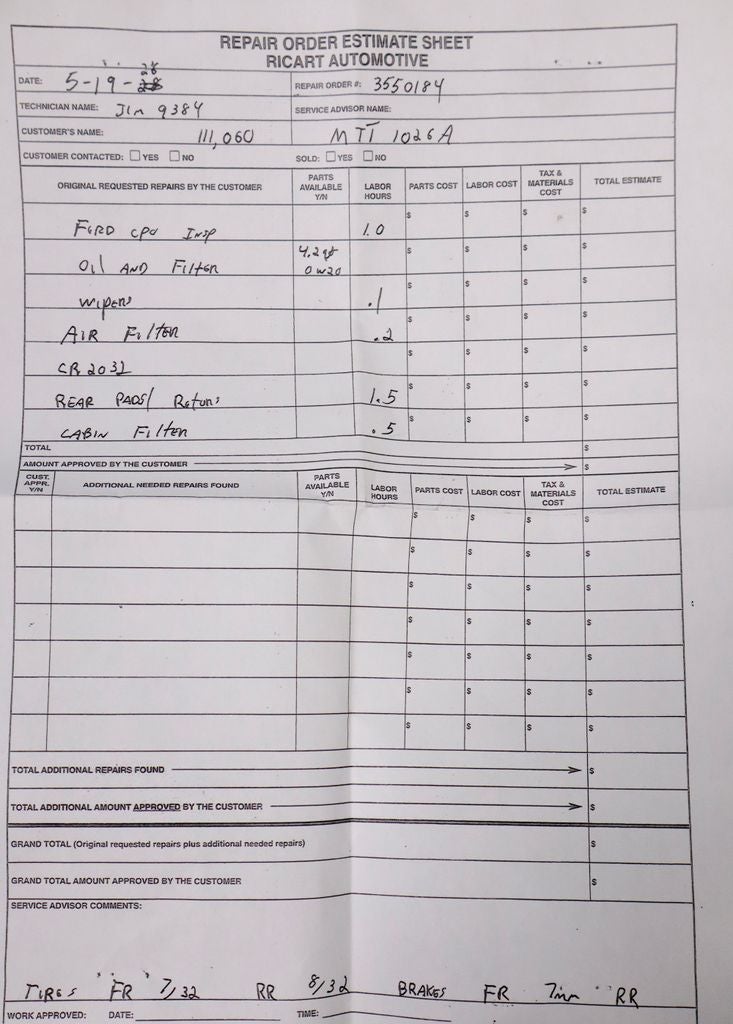 REPAIR ORDER ESTIMATE SHEET
RICART AUTOMOTIVE
DATE: 5-19-28 REPAIR ORDER #: 3550184
TECHNICIAN NAME: Jim 9384 SERVICE ADVISOR NAME:
CUSTOMER'S NAME: 111,060 MTI 1026A
CUSTOMER CONTACTED: ☐ YES ☐ NO SOLD: ☐ YES ☐ NO
ORIGINAL REQUESTED REPAIRS BY THE CUSTOMER PARTS AVAILABLE Y/N LABOR HOURS PARTS COST LABOR COST TAX & MATERIALS COST TOTAL ESTIMATE
FORD CPO INSP 1.0 $ $ $ $
Oil AND Filter 4.2 qt 0w20 $ $ $ $
Wipers .1 $ $ $ $
AIR Filter .2 $ $ $ $
CR 2032 $ $ $ $
REAR PADS/ Rotors 1.5 $ $ $ $
CABIN Filter .5 $ $ $ $
TOTAL $
AMOUNT APPROVED BY THE CUSTOMER $
CUST. APPR. Y/N ADDITIONAL NEEDED REPAIRS FOUND PARTS AVAILABLE Y/N LABOR HOURS PARTS COST LABOR COST TAX & MATERIALS COST TOTAL ESTIMATE
$ $ $ $
$ $ $ $
$ $ $ $
$ $ $ $
$ $ $ $
$ $ $ $
$ $ $ $
TOTAL ADDITIONAL REPAIRS FOUND $
TOTAL ADDITIONAL AMOUNT APPROVED BY THE CUSTOMER $
GRAND TOTAL (Original requested repairs plus additional needed repairs) $
GRAND TOTAL AMOUNT APPROVED BY THE CUSTOMER $
SERVICE ADVISOR COMMENTS:
TIRES FR 7/32 RR 8/32 BRAKES FR 7mm RR
WORK APPROVED: DATE: TIME: